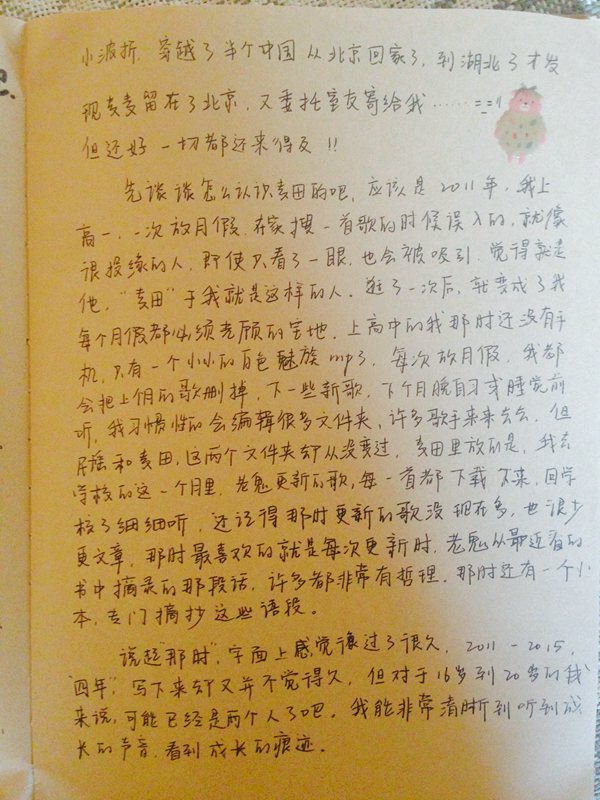 小波折，穿越了半个中国从北京回家了，到湖北了才发
现麦麦留在了北京，又委托室友寄给我……
但还好一切都还来得及!!
先谈谈怎么认识麦田的吧，应该是2011年，我上
高一，一次放月假，在家搜一首歌的时候误入的，就像
很投缘的人，即使只看了一眼，也会被吸引，觉得就是
他，“麦田”于我就是这样的人。逛了一次后，就变成了我
每个月假都必须光顾的宝地，上高中的我那时还没有手
机，只有一个小小的白色魅族mp3，每次放月假，我都
会把上个月的歌删掉，下一些新歌，下个月晚自习或睡觉前
听，我习惯性的会编辑很多文件夹，许多歌手来来去去，但
民谣和麦田，这两个文件夹却从没变过，麦田里放的是，我去
学校的这一个月里，老鬼更新的歌，每一首都下载下来，回学
校了细细听，还记得那时更新的歌没现在多，也很少
更文章，那时最喜欢的就是每次更新时，老鬼从最近看的
书中摘录的那段话，许多都非常有哲理，那时还有一个小
本，专门摘抄这些语段。
说起“那时”，字面上感觉像过了很久，2011-2015，
“四年”，写下来却又并不觉得久，但对于16岁到20岁的我
来说，可能已经是两个人了吧。我能非常清晰到听到成
长的声音，看到成长的痕迹。